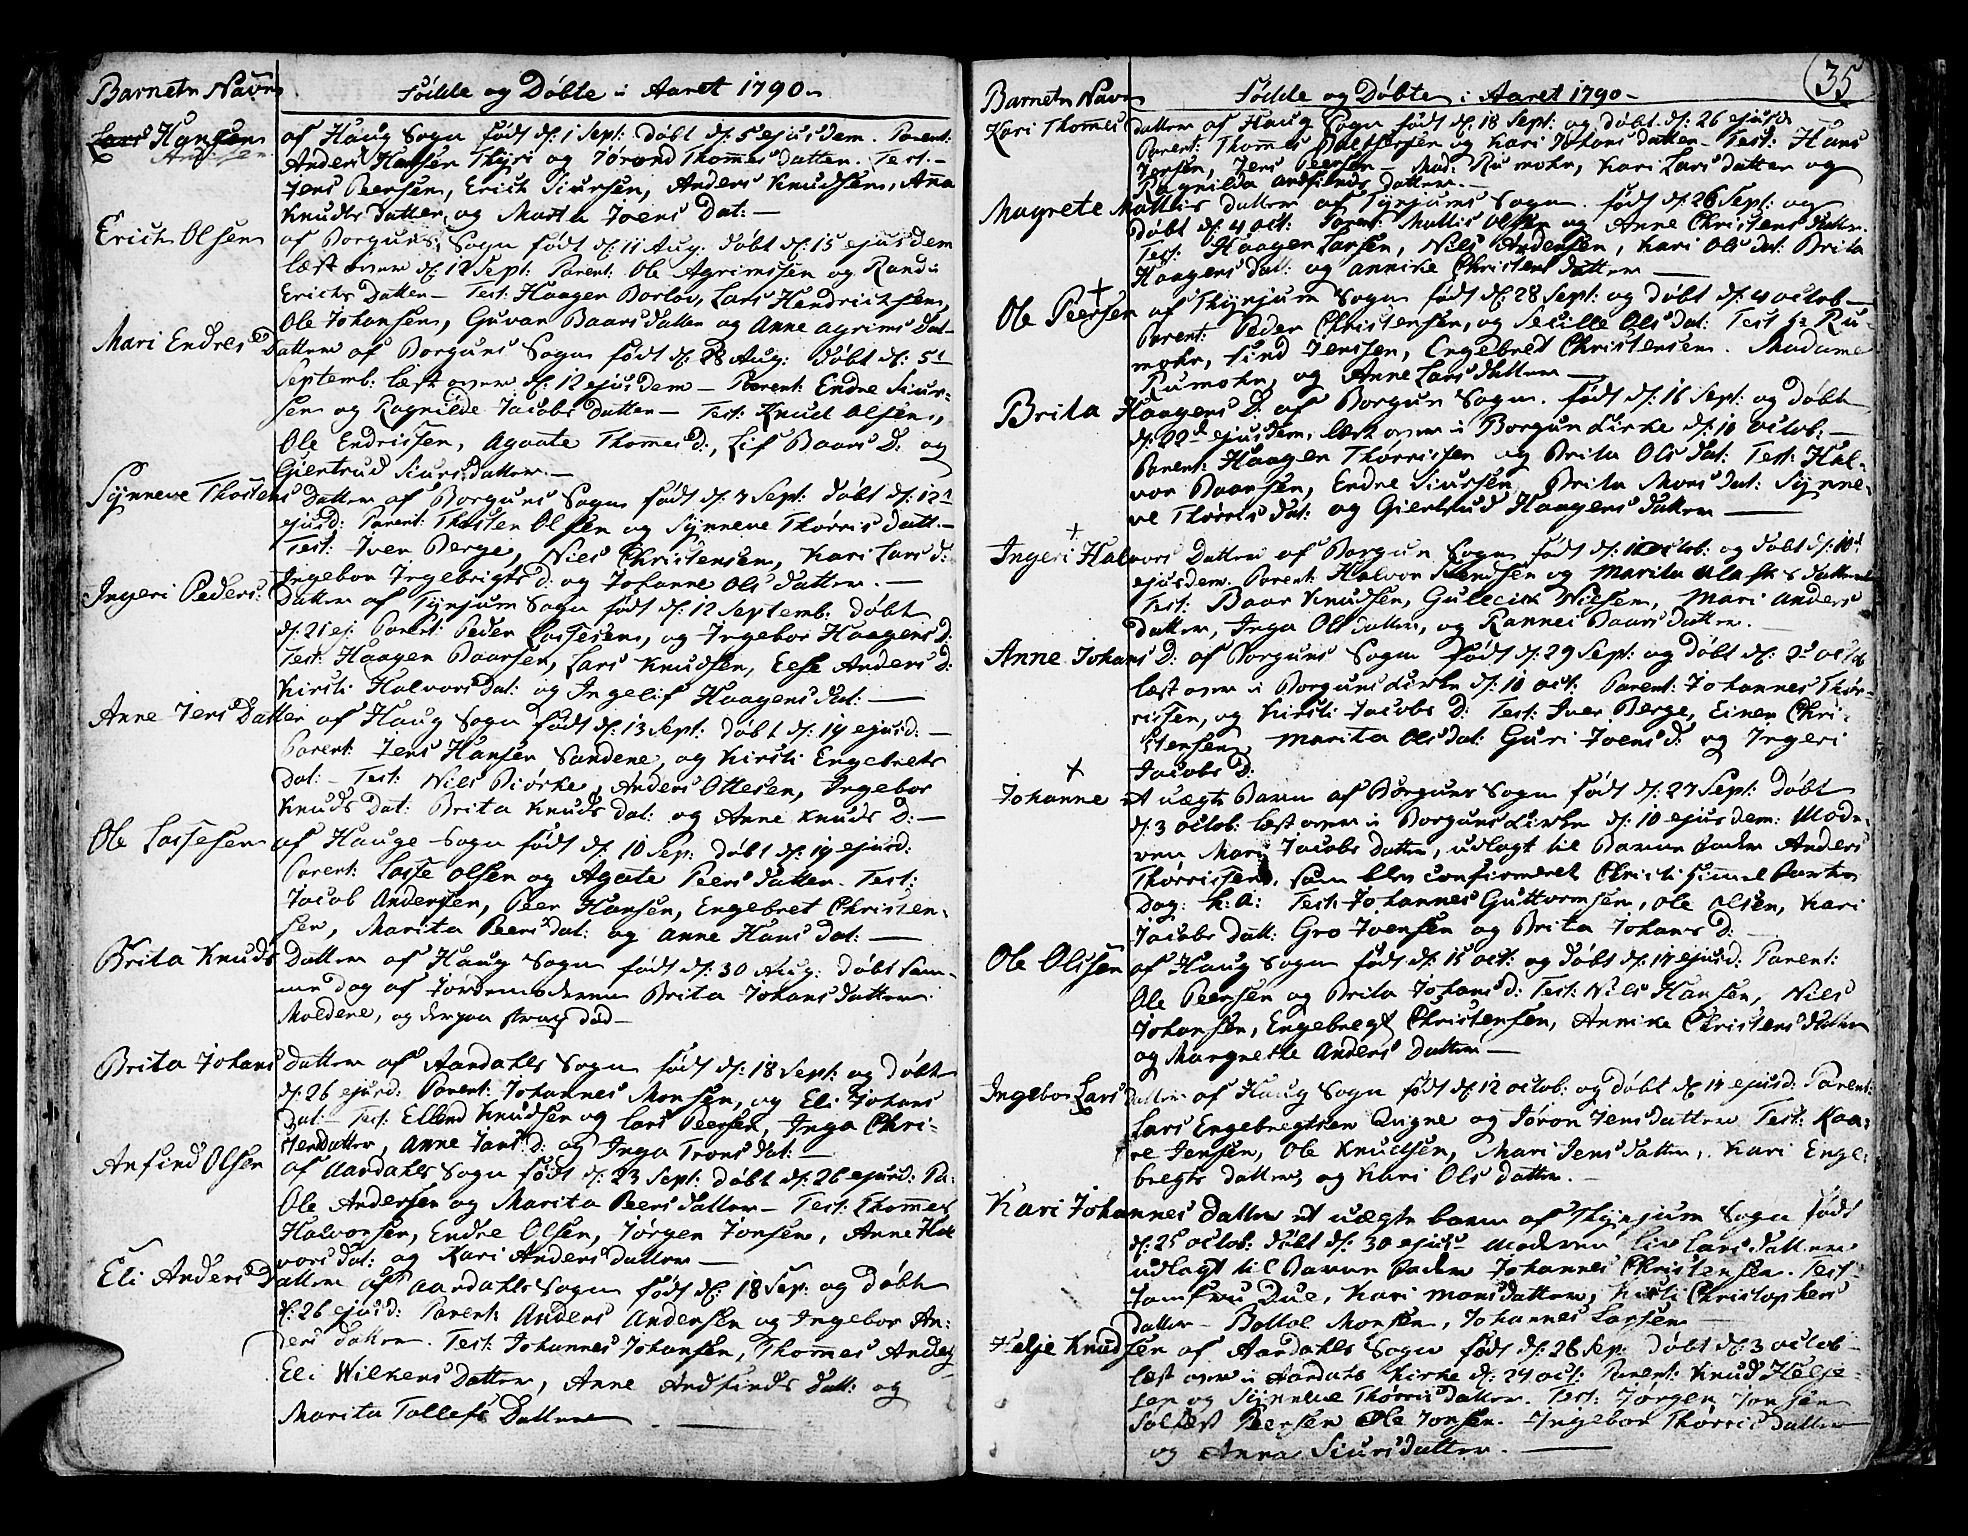 Barnets Navn
Födde og Döbte i Aaret 1790
Lars Hansen
Andersen
af Haug Sogn född d: 1 Sept: döbt d: 5 ejusdem. Parent:
Anders Hansen Thÿri og Jörand Thomes datter. Test:
Jens Peersen, Erich Siursen, Anders Knudsen, Anna
Knuds datter og Marta Joens Dat: —
Erich Olsen
af Borgunds Sogn född d: 11 Aug. döbt d: 15 ejusdem
læst over d: 12 Sept: Parent: Ole Agrimssen og Randi
Erichs Datter — Test: Haagen Borlov, Lars Hendrichsen,
Ole Johansen, Guvar Baars datter og Anne agrims Dat
Mari Endres D
datter af Borguns Sogn född d: 28 Aug: döbt d: 5t
Septemb: læst over d: 12 ejusdem — Parent: Endre Siur-
sen og Ragnilde Jacobs datter — Test: Knud Olsen,
Ole Endrissen, Agaate Thomes d:, Lif Baars D: og
Giertrud Siursdatter. —
Sÿnneve Thostens
Datter af Borguns Sogn född d: 7 Sept: döbt d: 12t
ejusd: Parent: Thosten Olsen og Sÿnneve Thörris datt: —
Test: Iver Berge, Niels Christensen, Kari Lars d:
Ingebor Ingebrigts d: og Johanne Ols datter. —
Ingeri Peders:
Datter af Tÿnjum Sogn född d: 12 Septemb: döbt
d: 21 ej: Parent: Peder Lassesen, og Ingebor Haagens D:
Test: Haagen Baarsen, Lars Knudsen, Else Anders D:
Kirsti Halvors dat: og Ingelif Haagens dat: —
Anne Jens Datter
af Haug Sogn född d: 13 Sept: döbt d: 19 ejusd: —
Parent: Jens Hansen Sandene, og Kirsti Engebrets
Dat: — Test: Niels Biörke, Anders Ottesen, Ingebor
Knuds Dat: Brita Knuds dat: og Anne Knuds D: —
Ole Lassesen
af Hauge Sogn född d: 10 Sep: döbt d: 19 ejusd:
Parent: Lasse Olsen og Agate Peers datter. Test:
Jacob Andersen, Peer Hansen, Engebret Christen-
sen, Marita Peers dat: og Anne Hans dat: —
Brita Knuds
Datter af Haug Sogn född d: 30 Aug: döbt sam-
me dag af Jordemoderen Brita Johans datter
Moldene, og derpaa strax död —
Brita Johans
datter af Aardahls Sogn född d: 18 Sept: og döbt
d: 26 ejusd: Parent: Johannes Monsen, og Eli Johans
Dat — Test: Ellend Knudsen og Lars Peersen, Inga Chri-
stensdatter, Anne Jans d: og Inga Trons dat: —
Anfind Olsen
af Aardahls Sogn född d: 23 Sept: döbt d: 26 ejusd: Pa:
Ole Andersen og Marita Peers datter — Test: Thommes
Halvorsen, Endre Olsen, Jörgen Jonsen, Anne Hal
vors dat: og Kari Anders datter —
Eli Anders D
datter af Aardahls Sogn född d: 18 Sep: og döbt
d: 26 ejusd: Parent: Anders Andersen og Ingebor An:
ders datter. Test: Johannes Johansen, Thommes Anders
Eli Wilkens Datter, Anne Andfinds datt: og
Marita Tollefs Datter —
35
Barnets Navn
Födde og Döbte i Aaret 1790 —
Kari Thommes
datter af Haug Sogn född d: 18 Sept: og döbt d: 26 ejusd:
Parent: Thommes Balthersen og Kari Johans datter — Test: Hans
Jensen, Jens Peersen — Mad: Rumohr, Kari Lars datter og
Ragnilda Andfinds Datter. —
Magrete Mattis
datter af Tÿnjums Sogn. född d: 26 Sept: og
döbt d: 4 oct: Parent: Mattis Olsen og Anne Christens datter.
Test: Haagen Larsen, Niels Andersen, Kari Ols dat: Brita
Haagens dat: og Annike Christens datter —
Ole Peersen
af Thÿnjum Sogn född d: 28 Sept: og döbt d: 4 octob —
Parent: Peder Christensen, og Secille Ols dat: Test hr Ru-
mohr, Find Jenssen, Engebret Christensen. Madame
Rumohr, og Anne Lars datter —
Brita Haagens D:
af Borgun Sogn. född d: 16 Sept: og döbt
d: 22d ejusdem, læst over i Borgun Kirke d: 10 octob: —
Parent: Haagen Thörrissen og Brita Ols dat: Test: Hal-
vor Baarsen, Endre Siursen, Brita Mons dat: Sÿnne-
ve Thörris dat: og Giertrud Haagens datter —
Ingeri Halvors
Datter af Borgun Sogn född d: 1 octob: og döbt d: 10d
ejusdem. Parent: Halvor Svendsen og Marita datter
Test: Baar Knudsen, Gulleick Nielsen, Mari Anders
datter, Inga Ols datter, og Rannei Baars datter. —
Anne Johans D:
af Borguns Sogn född d: 29 Sept: og döbt d: 3d octob
læst over i Borguns Kirke d: 10 oct: Parent: Johannes Thör-
rissen, og Kirsti Jacobs D: Test: Iver Berge, Einer Chri-
stensen, Marita Ols dat: Guri Joens d: og Ingeri
Jacobs D:
Johanne
et uægte Barn af Borguns Sogn född d: 27 Sept: döbt
d: 3 octob: læst over i Borguns Kirke d: 10 ejusdem: Mode-
ren Mari Jacobs datter, udlagt til Barne fader Anders
Thörrissen, som blev confirmeret Christi Himmelfarts
Dag: h: a: Test: Johannes Guttormsen, Ole Olsen, Kari
Jacobs datt: Gro Joensen og Brita Johans D: —
Ole Olssen
af Haug Sogn född d: 15 oct: og döbt d: 17 ejusd: Parent:
Ole Peersen og Brita Johans d: Test: Niels Hansen, Niels
Johansen, Engebregt Christensen, Annike Christens datter
og Margrethe Anders Datter —
Ingebor Lars
datter af Haug Sogn född d: 12 octob: og döbt d: 17 ejusd: Parent:
Lars Engebregtsen Quigne og Jöron Jens datter Test: Kaa-
re Jensen, Ole Knudsen, Mari Jens datter, Kari Enge-
bregts datter, og Kari Ols datter. —
Kari Johannes
datter et uægte barn af Thÿnjum Sogn född
d: 25 octob: döbt d: 30 ejus — Moderen Liv Lars datter
udlagt til Barne fader Johannes Christensen. Test:
Jomfru Due, Kari Mons datter, Kirsti Christophers
datter — Bottol Monsen, Johannes Larsen —
Helje Knudsen
af Aardahls Sogn född d: 26 Sep: döbt d: 3 octob —
læst over i Aardals Kirke d: 24 oct: Parent: Knud Helje-
sen og Sÿnneve Thörris datter. Test: Jörgen Jonsen
Solfest Peersen Ole Jonsen. Ingebor Thörris datter
og Anna Siurs datter. —